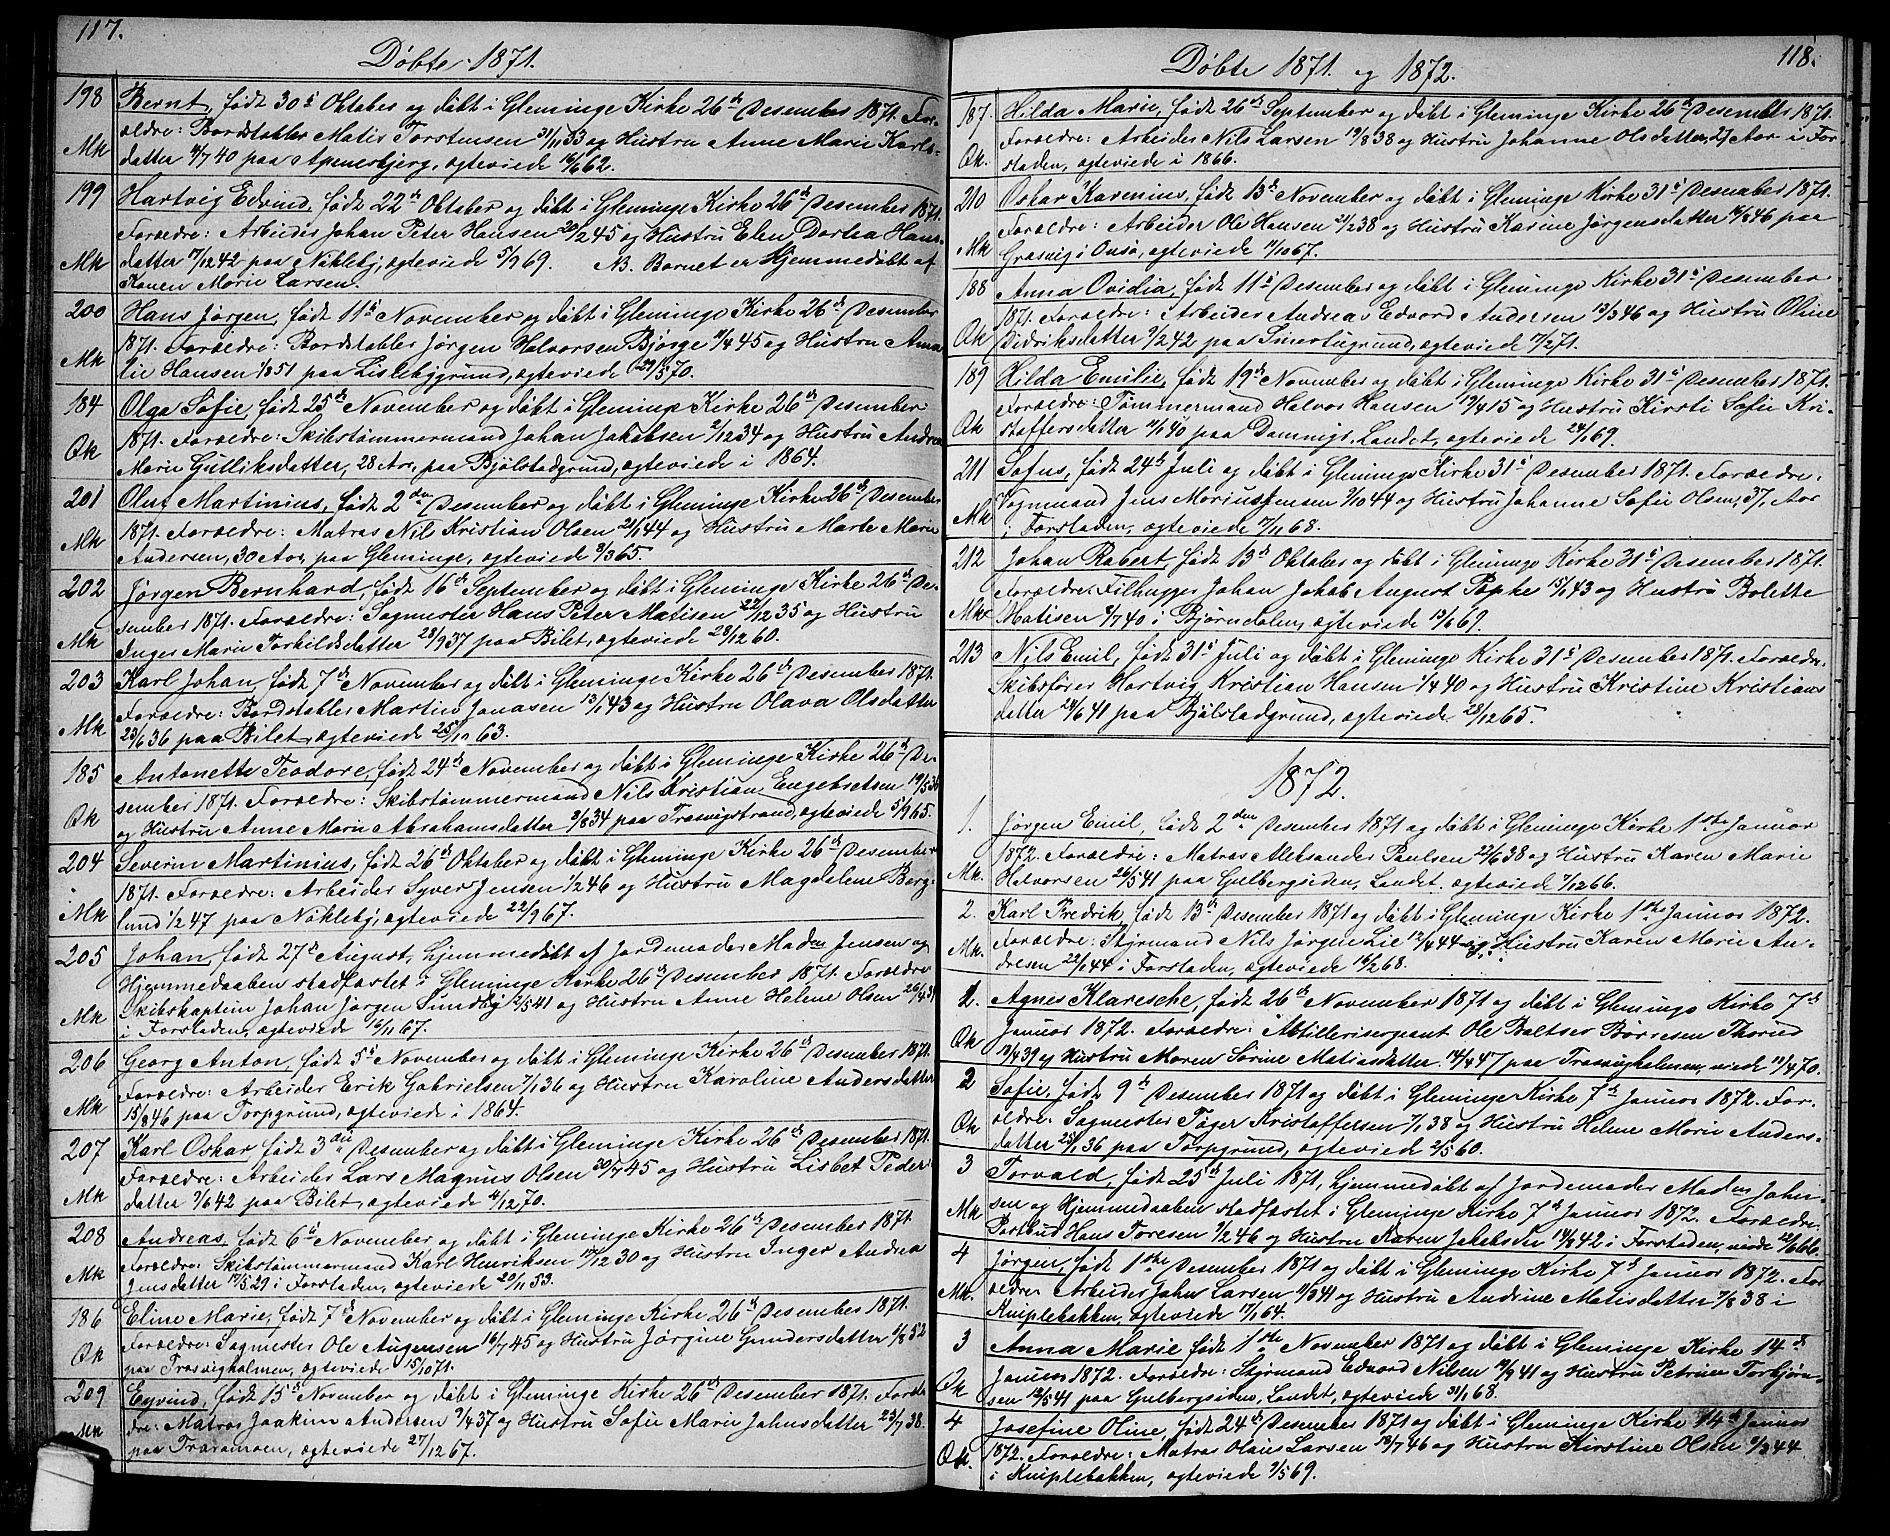 117.
Døbte 1871.
198 Bernt, født 30te Oktober og døbt i Gleminge Kirke 26de Desember 1871. For-
ældre: Bordstabler Matis Torstensen 31/1133 og Hustru Anne Marie Karls-
Mk datter 4/740 paa Apenesbjerg, egteviede 16/662.
199 Hartvig Edvind, født 22de Oktober og døbt i Gleminge Kirke 26de Desember 1871.
Forældre: Arbeider Johan Peter Hansen 20/245 og Hustru Elen Dortea Hans-
Mk datter 17/1242 paa Nøkleby, egteviede 5/969. NB. Barnet er Hjemmedøbt af
Konen Marie Larsen.
200 Hans Jørgen, født 11te November og døbt i Gleminge Kirke 26de Desember
1871. Forældre: Bordstabler Jørgen Halvorsen Bjørge 11/445 og Hustru Ama-
Mk lie Hansen 1/851 paa Lislebygrund, egteviede 29/570.
184 Olga Sofie, født 25de November og døbt i Gleminge Kirke 26de Desember
1871. Forældre: Skibstømmermand Johan Jakobsen 2/1234 og Hustru Andrea
Qk Marie Gulliksdatter, 28 Aar, paa Bjølstadgrund, egteviede i 1864.
201 Oluf Martinius, født 2den Desember og døbt i Gleminge Kirke 26de Desember
1871. Forældre: Matros Nil Kristian Olsen 21/144 og Hustru Marte Marie
Mk Andersen, 30 Aar, paa Gleminge, egteviede 3/365.
202 Jørgen Bernhard, født 16de September og døbt i Gleminge Kirke 26de De-
sember 1871. Forældre: Sagmester Hans Peter Matisen 22/1235 og Hustru
Mk Inger Marie Torkildsdatter 28/937 paa Bilet, egteviede 28/1260.
203 Karl Johan, født 7de November og døbt i Gleminge Kirke 26de Desember 1871.
Forældre: Bordstabler Martin Jonasen 13/143 og Hustru Olava Olsdatter
Mk 23/636 paa Bilet, egteviede 25/1263.
185 Antonette Teodore, født 24de November og døbt i Gleminge Kirke 26de De-
sember 1871. Forældre: Skibstømmermand Nils Kristian Engebretsen 19/536
Qk og Hustru Anne Marie Abrahamsdatter 3/834 paa Trosvigstrand, egteviede 5/965.
204 Severin Martinius, født 26de Oktober og døbt i Gleminge Kirke 26de Desember
1871. Forældre: Arbeider Syver Jensen 1/246 og Hustru Magdalene Berg-
Mk lund 1/247 paa Nøkleby, egteviede 22/967.
205 Johan, født 27de August, hjemmedøbt af Jordemoder Maden Jensen og
Hjemmedaaben stadfæstet i Gleminge Kirke 26de Desember 1871. Forældre
Mk Skibskaptein Johan Jørgen Sundby 12/541 og Hustru Anne Helene Olsen 26/431
i Forstaden, egteviede 16/1167.
206 Georg Anton, født 5te November og døbt i Gleminge Kirke 26de Desember 1871.
Forældre: Arbeider Erik Gabrielsen 7/136 og Hustru Karoline Andersdatter
Mk 15/846 paa Torpgrund, egteviede i 1864.
207 Karl Oskar, født 3die Desember og døbt i Gleminge Kirke 26de Desember 1871.
Forældre: Arbeider Lars Magnus Olsen 30/745 og Hustru Lisbet Peder-
Mk datter 9/642 paa Bilet, egteviede 4/1270.
208 Andreas, født 6te November og døbt i Gleminge Kirke 26de Desember 1871.
Forældre: Skibstømmermand Karl Henriksen 17/1230 og Hustru Inger Andrea
Mk Jensdatter 17/529 i Forstaden, egteviede 20/1153.
186 Eline Marie, født 7de November og døbt i Gleminge Kirke 26de Desember 1871.
Forældre: Sagmester Ole Augensen 16/745 og Hustru Jørgine Gundersdatter 6/852
Qk paa Trosvigholmen, egteviede 15/1071.
209 Eyvind, født 15de November og døbt i Gleminge Kirke 26de Desember 1871. Foræl-
dre: Matros Joakim Andersen 9/437 og Hustru Sofie Marie Johnsdatter 23/738
Mk paa Traramoen, egteviede 27/1267.
118.
Døbte 1871. og 1872.
187. Hilda Marie, født 26de September og døbt i Gleminge Kirke 26de Desember 1871.
Forældre: Arbeider Nils Larsen 19/838 og Hustru Johanne Olsdatter, 27 Aar i For-
Qk. staden, egteviede i 1866.
210 Oskar Karenius, født 13de November og døbt i Gleminge Kirke 31te Desember 1871.
Forældre: Arbeider Ole Hansen 21/238 og Hustru Karine Jørgensdatter 16/846 paa
Mk Græsvig i Onsø, egteviede 11/1067.
188 Anna Ovidia, født 11te Desember og døbt i Gleminge Kirke 31te Desember
1871. Forældre: Arbeider Andreas Edvard Andersen 13/346 og Hustru Oline
Qk Didriksdatter 9/242 paa Smertugrund, egteviede 17/271.
189 Hilda Emilie, født 19de November og døbt i Gleminge Kirke 31te Desember 1871.
Forældre: Tømmermand Halvor Hansen 17/415 og Hustru Kirsti Sofie Kri-
Qk stoffersdatter 11/140 paa Damnigs. Landet, egteviede 24/169.
211 Sofus, født 24de Juli og døbt i Gleminge Kirke 31te Desember 1871. Forældre:
Vognmand Jens Marius Jensen 2/1044 og Hustru Johanne Sofie Olsen, 37, Aar
Mk i Forstaden, egteviede 17/168.
212 Johan Robert, født 13de Oktober og døbt i Gleminge Kirke 31te Desember 1871.
Forældre: Filhugger Johan Jakob August Pøpke 15/143 og Hustru Bolette
Mk Matisen 4/740 i Bjørndalen, egteviede 13/669.
213 Nils Emil, født 31te Juli og døbt i Gleminge Kirke 31te Desember 1871. Forældre:
Skibsfører Hartvig Kristian Hansen 1/440 og Hustru Kristine Kristians
datter 24/641 paa Bjølstadgrund, egteviede 28/1265.
1872.
1. Jørgen Emil, født 2den Desember 1871 og døbt i Gleminge Kirke 1ste Januar
1872. Forældre: Matros Aleksander Paulsen 22/638 og Hustru Karen Marie
Mk. Halvorsen 26/541 paa Gulbergsiden, Landet. egteviede 7/1266.
2. Karl Fredrik, født 13de Desember 1871 og døbt i Gleminge Kirke 1ste Januar 1872.
Mk. Forældre: Styrmand Nils Jørgen Lie 12/444 og Hustru Karen Marie An-
dresen 22/144 i Forstaden, egteviede 16/268.
1. Agnes Klaresche, født 26de November 1871 og døbt i Gleminge Kirke 7de
Qk Januar 1872. Forældre: Artillerisergeant Ole Baltser Børresen Thorud
13/439 og Hustru Maren Sørine Matiasdatter 14/447 paa Trosvigholmen, viede 17/470.
2 Sofie, født 9de Desember 1871 og døbt i Gleminge Kirke 7de Januar 1872. For-
Qk ældre: Sagmester Tøger Kristoffersen 7/138 og Hustru Helene Marie Anders-
datter 25/136 paa Torpgrund, egteviede 2/560.
3 Torvald, født 25de Juli 1871, hjemmedøbt af Jordemoder Maden John-
Mk sen og Hjemmedaaben stadfæstet i Gleminge Kirke 7de Januar 1872. Forældre:
Postbud Hans Toresen 1/246 og Hustru Karen Jakobsdr 14/942 i Forstaden, viede 22/666.
4 Jørgen, født 1ste Desember 1871 og døbt i Gleminge Kirke 7de Januar 1872. For-
Mk. ældre: Arbeider John Larsen 11/341 og Hustru Andrine Matisdatter 7/838 i
Kniplebakken, egteviede 17/164.
3 Anna Marie født 1ste November 1871 og døbt i Gleminge Kirke 14de
Qk Januar 1872. Forældre: Styrmand Edvard Nilsen 19/941 og Hustru Petrine Torbjørn-
sen 12/541 paa Gulbergsiden, Landet, egteviede 31/168.
4 Josefine Oline, født 24de Desember 1871 og døbt i Gleminge Kirke 14de Januar
Qk. 1872. Forældre: Matros Olaus Larsen 13/746 og Hustru Kirstine Olsen 6/344
i Kniplebakken, egteviede 9/569.